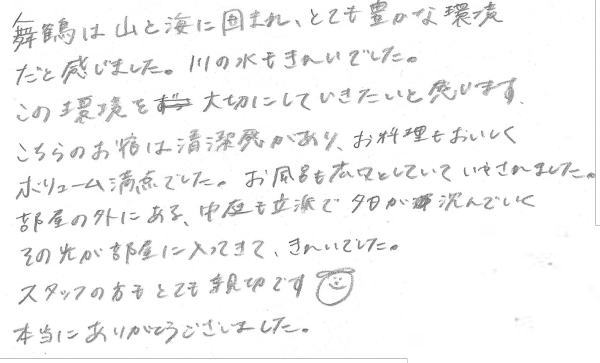 舞鶴は山と海に囲まれ、とても豊かな環境
だと感じました。川の水もきれいでした。
この環境を大切にしていきたいと感じます。
こちらのお宿は清潔感があり、お料理もおいしく
ボリューム満点でした。お風呂も広々としていていやされました。
部屋の外にある、中庭も立派で夕日が沈んでいく
その光が部屋に入ってきて、きれいでした。
スタッフの方もとても親切です
本当にありがとうございました。